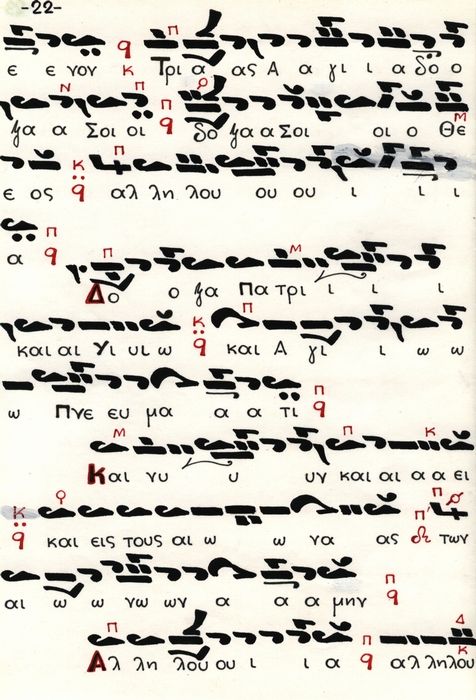 -22-
ε ε νον κ Τρι α ας Α α γι ι α δο ο
ξα α Σοι οι δο ξα α Σοι οι ο Θε
ε ος αλ λη λου ου ου ι ι ι
α
Δο ο ξα Πα τρι ι ι ι
και αι Υι υι ω και Α γι ι ω ω
ω Πνε ευ μα α α τι
Και νυ υ υν και αι α α ει
και εις τους αι ω ω να ας των
αι ω ω νω ων α α α μην
Αλ λη λου ου ι ι α αλ ληλου